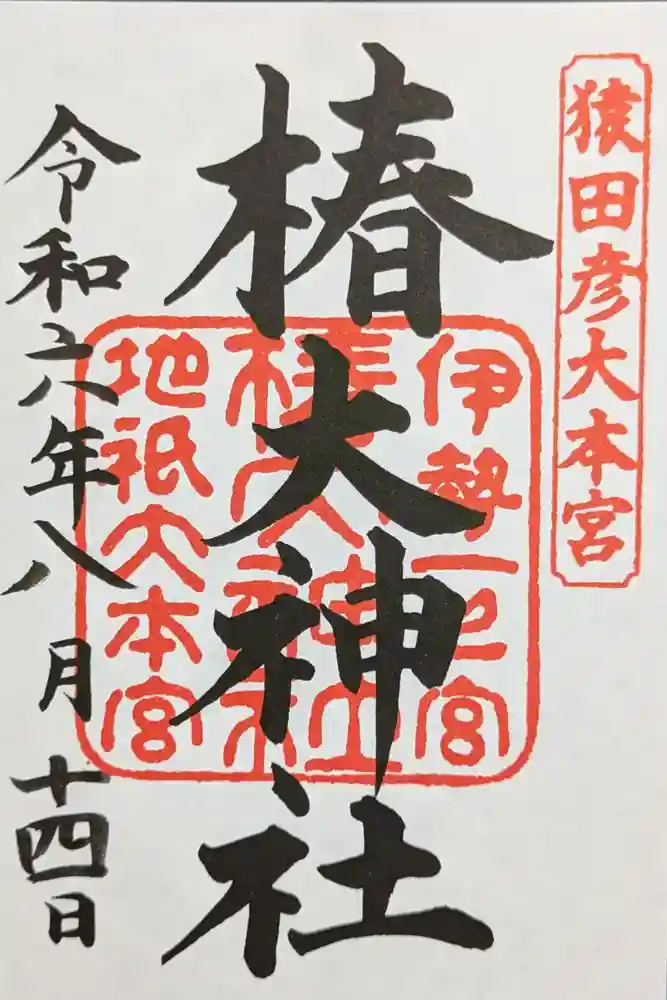 猿田彦大本宮
椿大神社
伊勢一之宮
椿大神社
地祇大本宮
令和六年八月十四日